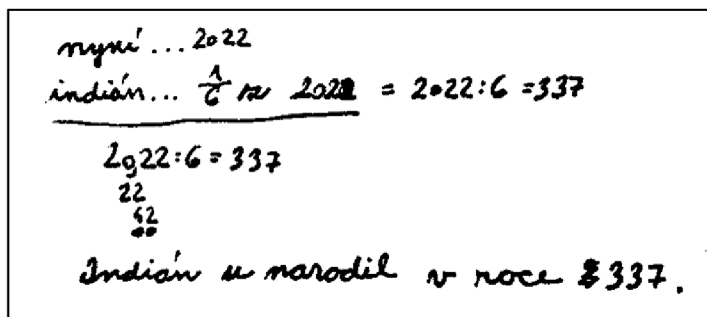 nyní... 2022
indián... 1/6 z 2022 = 2022:6 =337
2022:6 = 337
22
42
00
Indián se narodil v roce 337.